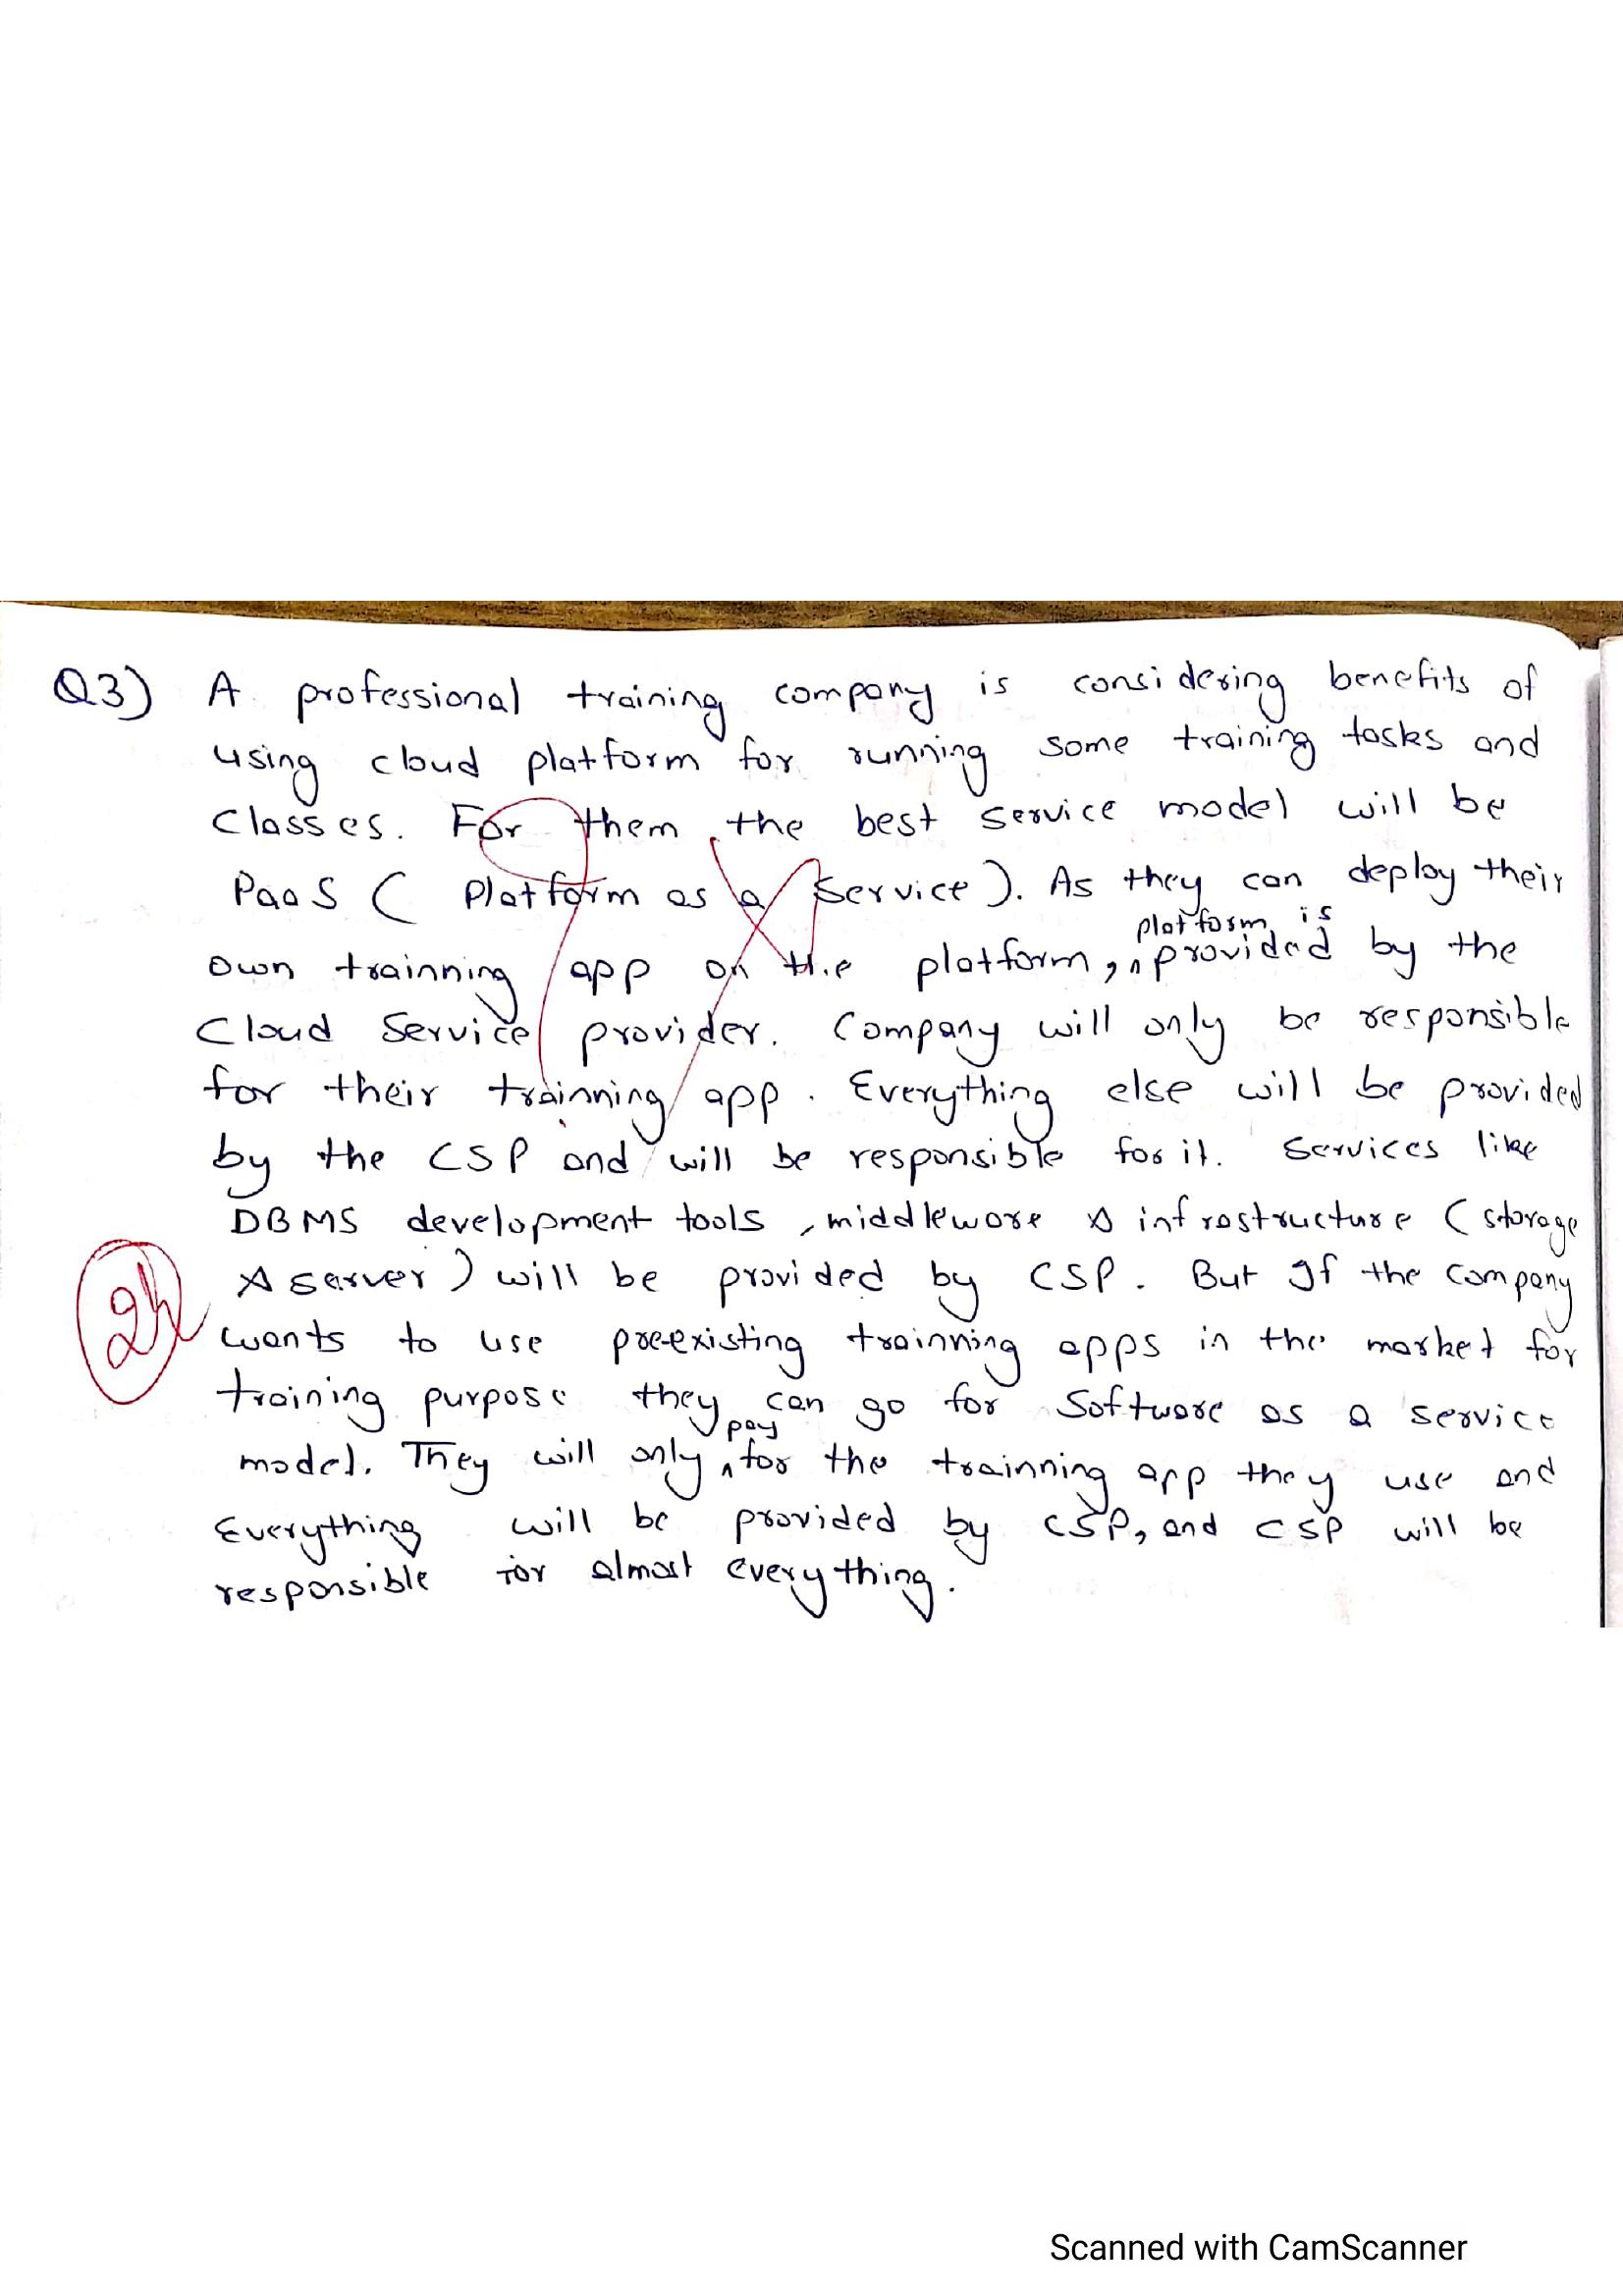 Q3) A professional training company is considering benefits of
using cloud platform for running some training tasks and
Classes. For them the best service model will be
PaaS ( Platform as a Service ). As they can deploy their
platform is
own trainning app on the platform, ^ provided by the
Cloud Service provider. Company will only be responsible
for their trainning app. Everything else will be provided
by the CSP and will be responsible for it. Services like
DBMS development tools, middleware & infrastructure ( storage
& server ) will be provided by CSP. But If the company
wants to use pre-existing trainning apps in the market for
training purpose they can go for Software as a service
pay
model. They will only ^ for the trainning app they use and
Everything will be provided by CSP, and CSP will be
responsible for almost everything.
Scanned with CamScanner